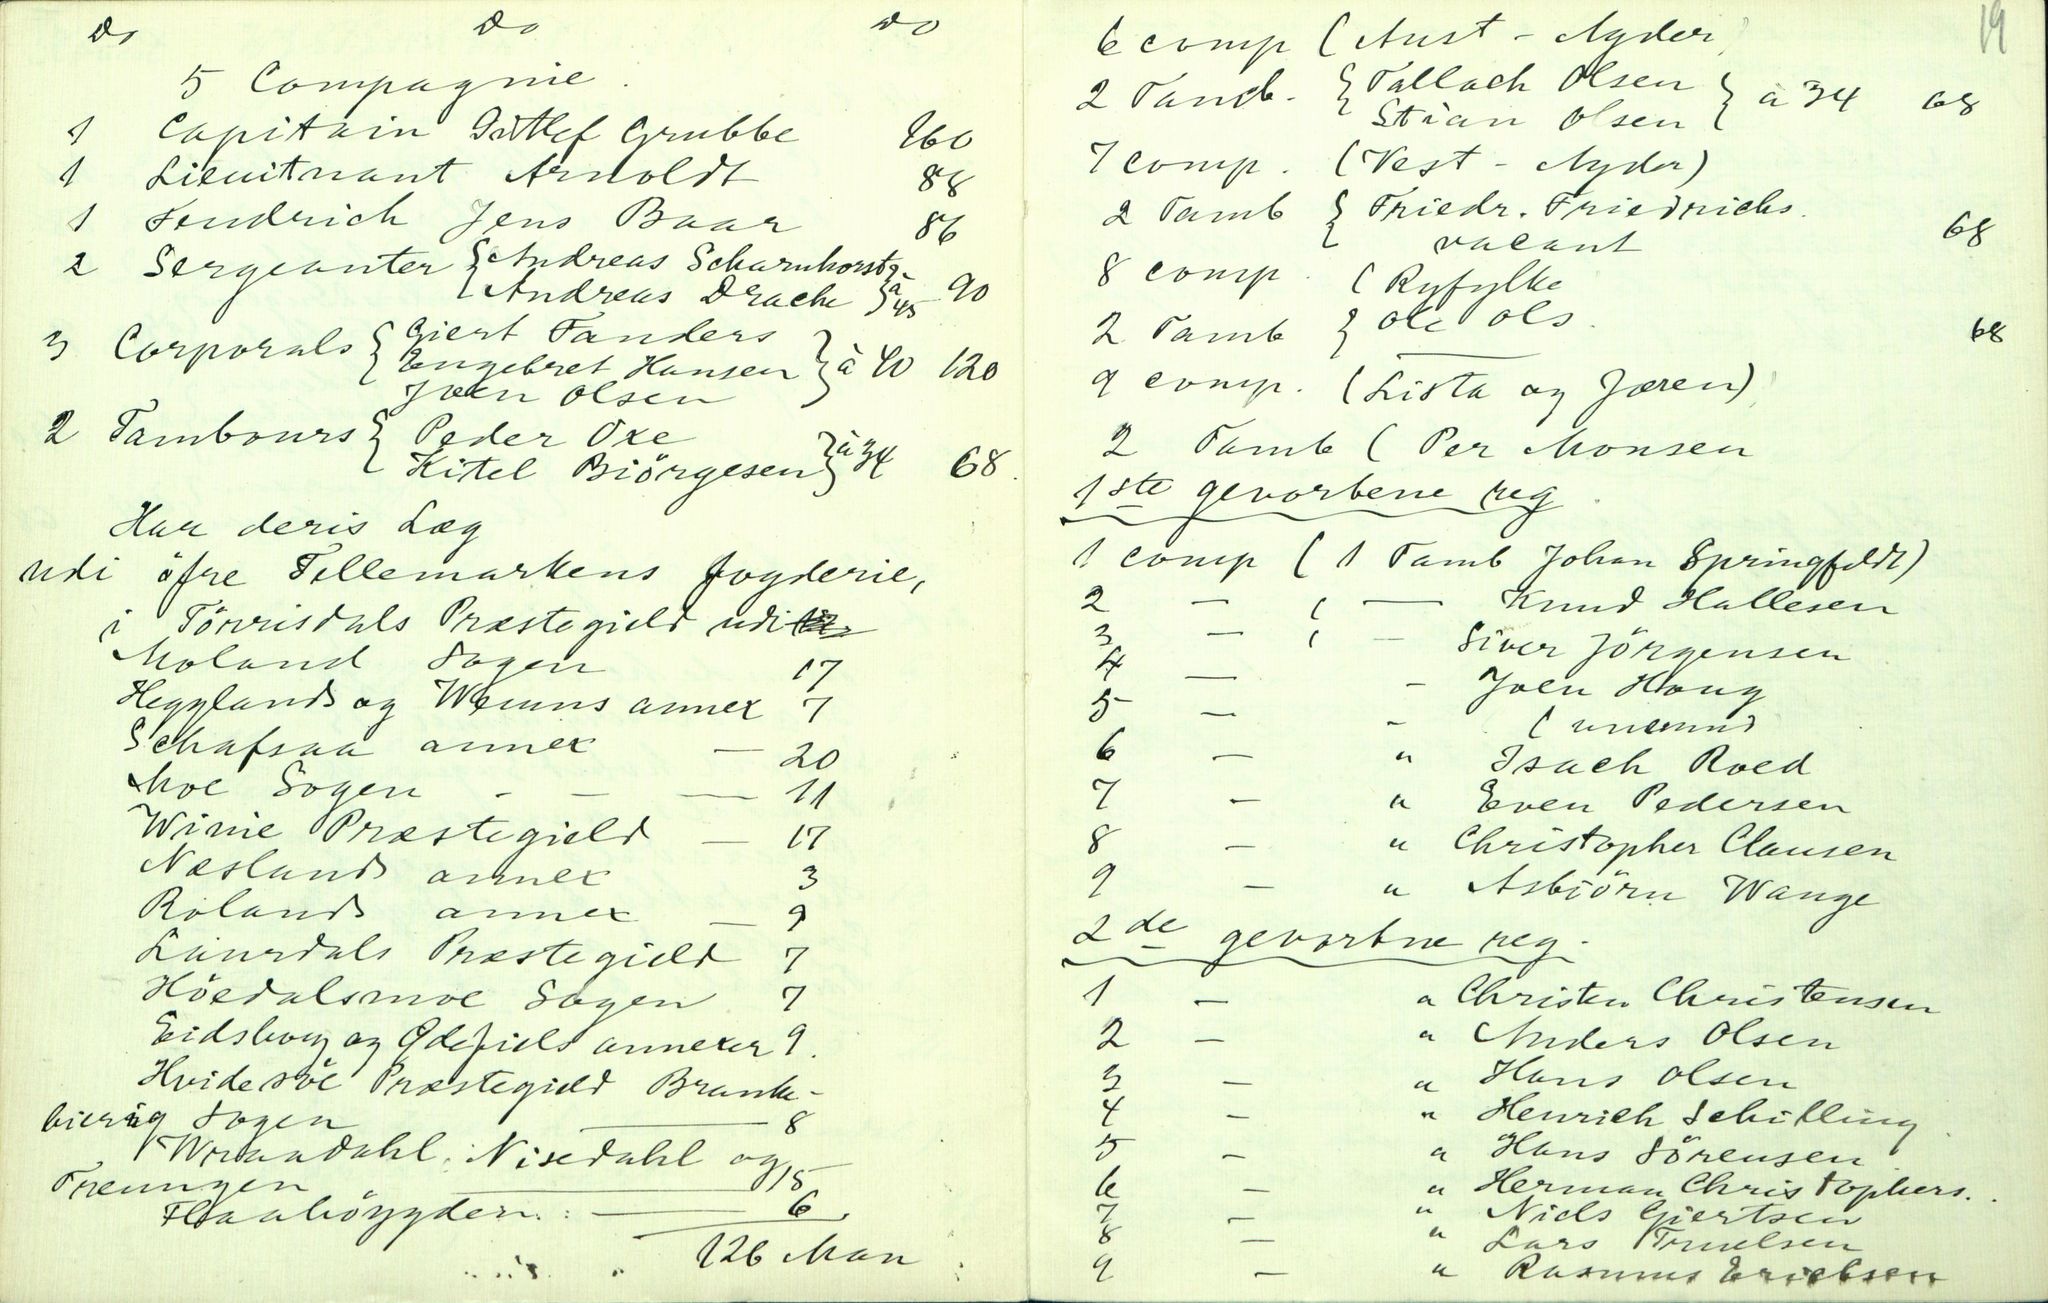 Do Do Do
5 Compagnie.
1 Capitain Ditlef Grubbe 160
1 Lieuitnant Arnoldt 88
1 Fendrich Jens Baar 86
2 Sergeanter { Andreas Scharnhorst
Andreas Drache } à 45 90
3 Corporals { Giert Fanders
Engebret Hansen } à 40 120
Joen Olsen
2 Tambours { Peder Oxe
Kitel Biörgesen } à 34 68.
Har deris Læg
udi öfre Tellemarkens fogderie,
i Törrisdals Præstegield udi
Moland Sogen 17
Heggland og Weums annex 7
Schafsaa annex — 20
Moe Sogen - — — 11
Winie Præstegield — 17
Næsland annex 3
Roland annex — 9
Laurdals Præstegield 7
Höedalsmoe Sogen 7
Eidsborg og annexer 9.
Hvidesöe Præstegield Brunke-
bierig Sogen — 8
Wraadahl, Nisedahl og
Treungen — 15
Flaabögyden. : — 6
126 Man
19
6 comp (Aust-Agder)
2 Tamb. { Tallach Olsen
Stian Olsen } à 34 68
7 comp. (Vest-Agder)
2 Tamb { Friedr. Friedrichs.
vacant 68
8 comp. (Ryfylke
2 Tamb { Ole Ols. 68
—
9 comp. (Lista og Jæren)
2 Tamb ( Per Monsen
1ste gevorbene reg.
1 comp ( 1 Tamb Johan Springfeldt)
2 — ( — Knud Hallesen
3 — ( — Siver Jörgensen
4 — - Joen Houg
5 — - ( unevnd
6 — " Isach Roed
7 — " Even Pedersen
8 - " Christopher Clausen
9 - " Asbiörn Wange
2de gevorbne reg.
1 — " Christen Christensen
2 — " Anders Olsen
3 — " Hans Olsen
4 — " Henrich Schilling
5 - " Hans Sörensen
6 — " Herman Christophers.
7 — " Niels Giertsen
8 — " Lars Truelsen
9 — " Rasmus Erichsen